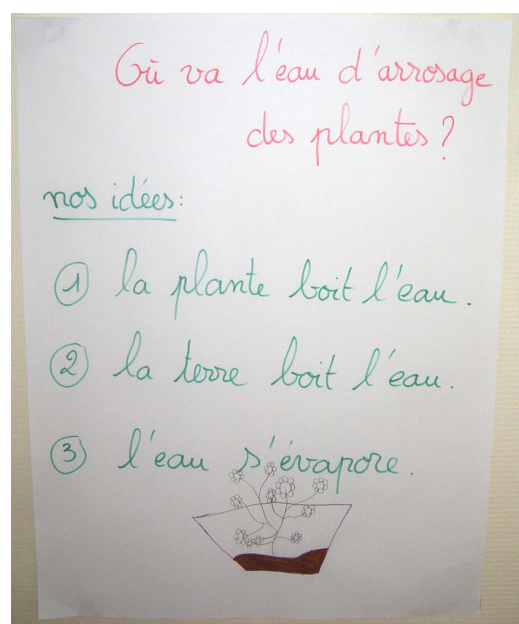 Où va l'eau d'arrosage
des plantes ?
nos idées:
1 la plante boit l'eau.
2 la terre boit l'eau.
3 l'eau s'évapore.